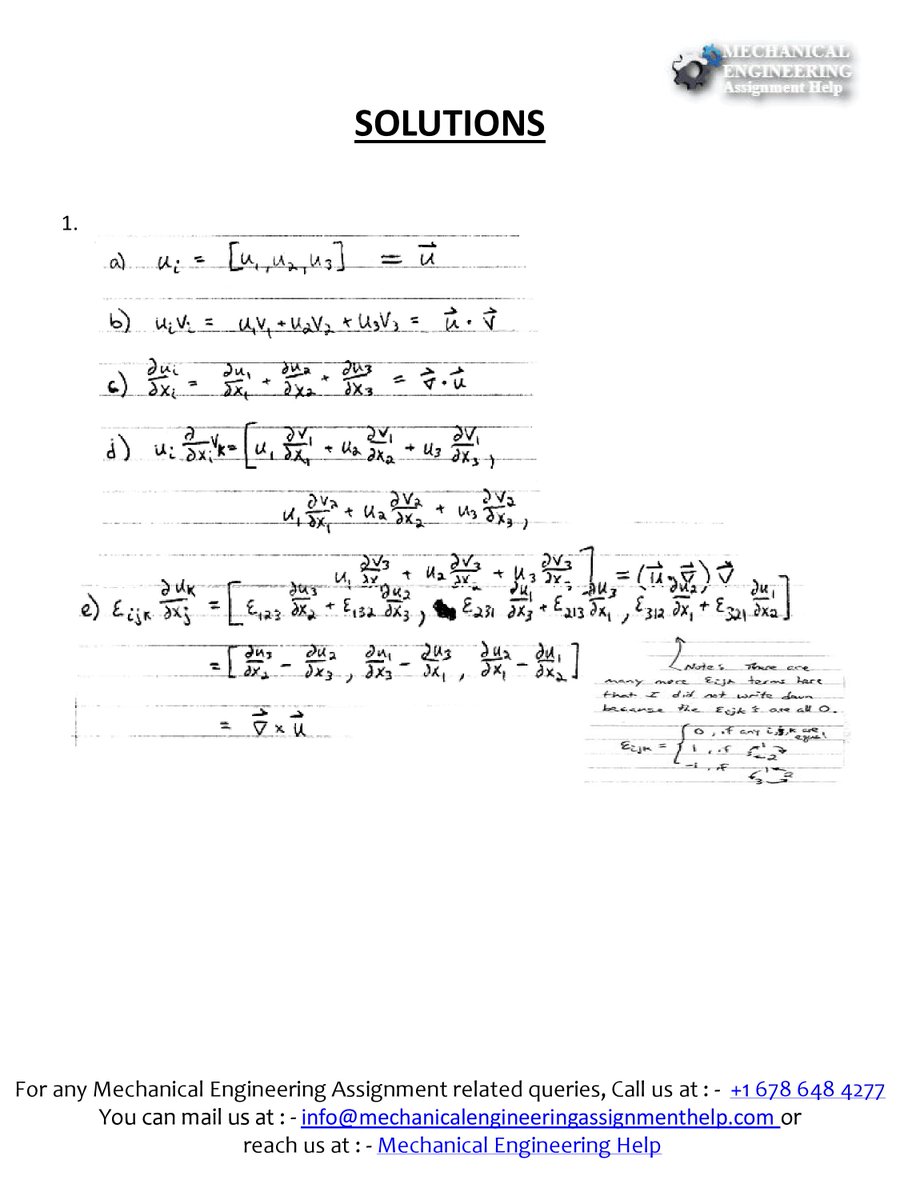 MECHANICAL
ENGINEERING
Assignment Help
SOLUTIONS
1.
a) uᵢ = [u₁, u₂, u₃] = u⃗
b) uᵢvᵢ = u₁v₁ + u₂v₂ + u₃v₃ = u⃗ · v⃗
c) ∂uᵢ/∂xᵢ = ∂u₁/∂x₁ + ∂u₂/∂x₂ + ∂u₃/∂x₃ = ∇⃗ · u⃗
d) uᵢ ∂/∂xᵢ vₖ = [u₁ ∂v₁/∂x₁ + u₂ ∂v₁/∂x₂ + u₃ ∂v₁/∂x₃,
u₁ ∂v₂/∂x₁ + u₂ ∂v₂/∂x₂ + u₃ ∂v₂/∂x₃,
u₁ ∂v₃/∂x + u₂ ∂v₃/∂x + u₃ ∂v₃/∂x] = (u⃗ · ∇⃗) v⃗
e) εᵢⱼₖ ∂uₖ/∂xⱼ = [ε₁₂₃ ∂u₃/∂x₂ + ε₁₃₂ ∂u₂/∂x₃, ε₂₃₁ ∂u₁/∂x₃ + ε₂₁₃ ∂u₃/∂x₁, ε₃₁₂ ∂u₂/∂x₁ + ε₃₂₁ ∂u₁/∂x₂]
= [∂u₃/∂x₂ − ∂u₂/∂x₃, ∂u₁/∂x₃ − ∂u₃/∂x₁, ∂u₂/∂x₁ − ∂u₁/∂x₂]
= ∇⃗ × u⃗
Note: There are
many more εᵢⱼₖ terms here
that I did not write down
because the εᵢⱼₖ's are all 0.
εᵢⱼₖ = { 0, if any i,j,k are equal
1, if 1 2
-1, if 1 2 3
For any Mechanical Engineering Assignment related queries, Call us at : - +1 678 648 4277
You can mail us at : - info@mechanicalengineeringassignmenthelp.com or
reach us at : - Mechanical Engineering Help